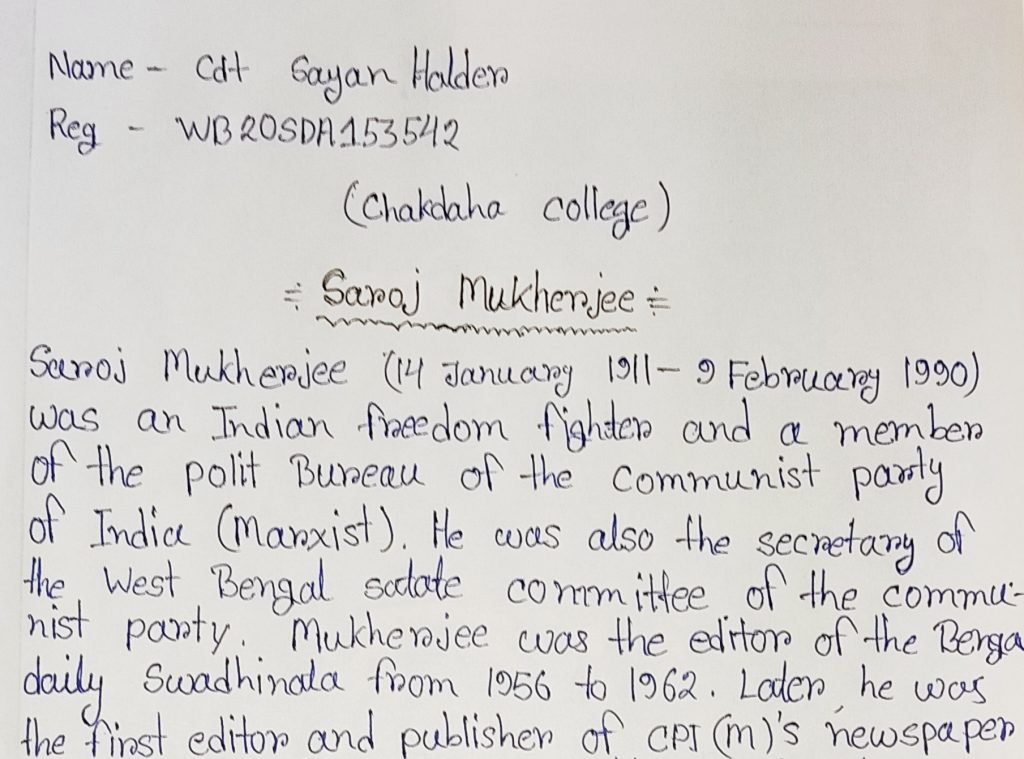 Name - Cdt Sayan Halder
Reg - WB20SDA153542
(Chakdaha college)
÷ Saroj Mukherjee ÷
Saroj Mukherjee (14 January 1911 - 9 February 1990)
was an Indian freedom fighter and a member
of the polit Bureau of the Communist party
of India (Marxist). He was also the secretary of
the West Bengal satate committee of the commu-
nist party. Mukherjee was the editor of the Benga
daily Swadhinata from 1956 to 1962. Later he was
the first editor and publisher of CPI (M)'s newspaper